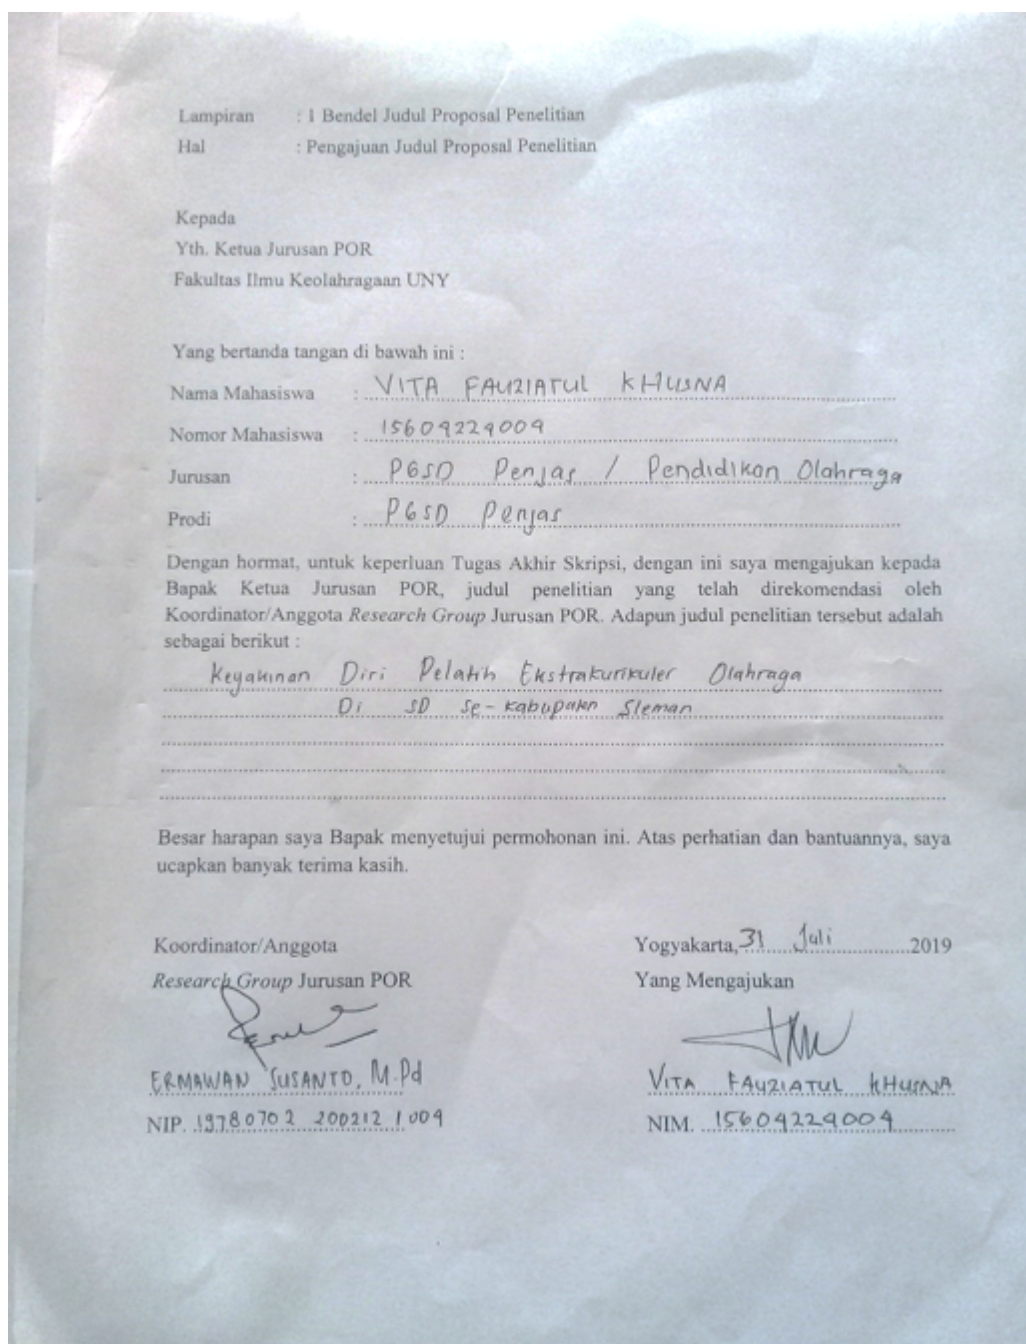 Lampiran : 1 Bendel Judul Proposal Penelitian
Hal : Pengajuan Judul Proposal Penelitian
Kepada
Yth. Ketua Jurusan POR
Fakultas Ilmu Keolahragaan UNY
Yang bertanda tangan di bawah ini :
Nama Mahasiswa : VITA FAUZIATUL KHUSNA
Nomor Mahasiswa : 15604224004
Jurusan : PGSD Penjas / Pendidikan Olahraga
Prodi : PGSD Penjas
Dengan hormat, untuk keperluan Tugas Akhir Skripsi, dengan ini saya mengajukan kepada
Bapak Ketua Jurusan POR, judul penelitian yang telah direkomendasi oleh
Koordinator/Anggota Research Group Jurusan POR. Adapun judul penelitian tersebut adalah
sebagai berikut :
Keyakinan Diri Pelatih Ekstrakurikuler Olahraga
Di SD Se-Kabupaten Sleman
Besar harapan saya Bapak menyetujui permohonan ini. Atas perhatian dan bantuannya, saya
ucapkan banyak terima kasih.
Koordinator/Anggota
Research Group Jurusan POR
ERMAWAN SUSANTO, M.Pd
NIP. 19780702 200212 1 004
Yogyakarta, 31 Juli 2019
Yang Mengajukan
VITA FAUZIATUL KHUSNA
NIM. 15604224004